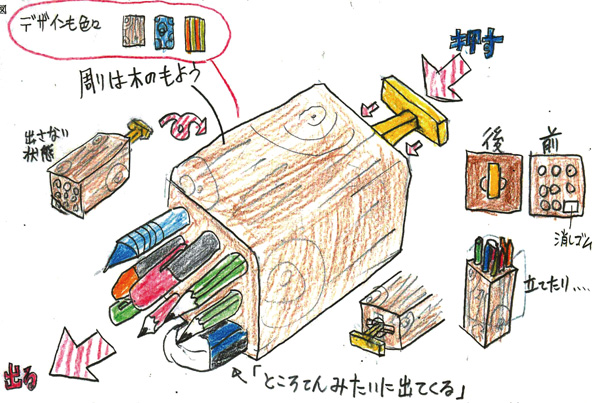 図
デザインも色々
彫りは木のもよう
押す
出さない
状態
後
前
消しゴム
立てたり、、、、
出る
「ところてんみたいに出てくる」